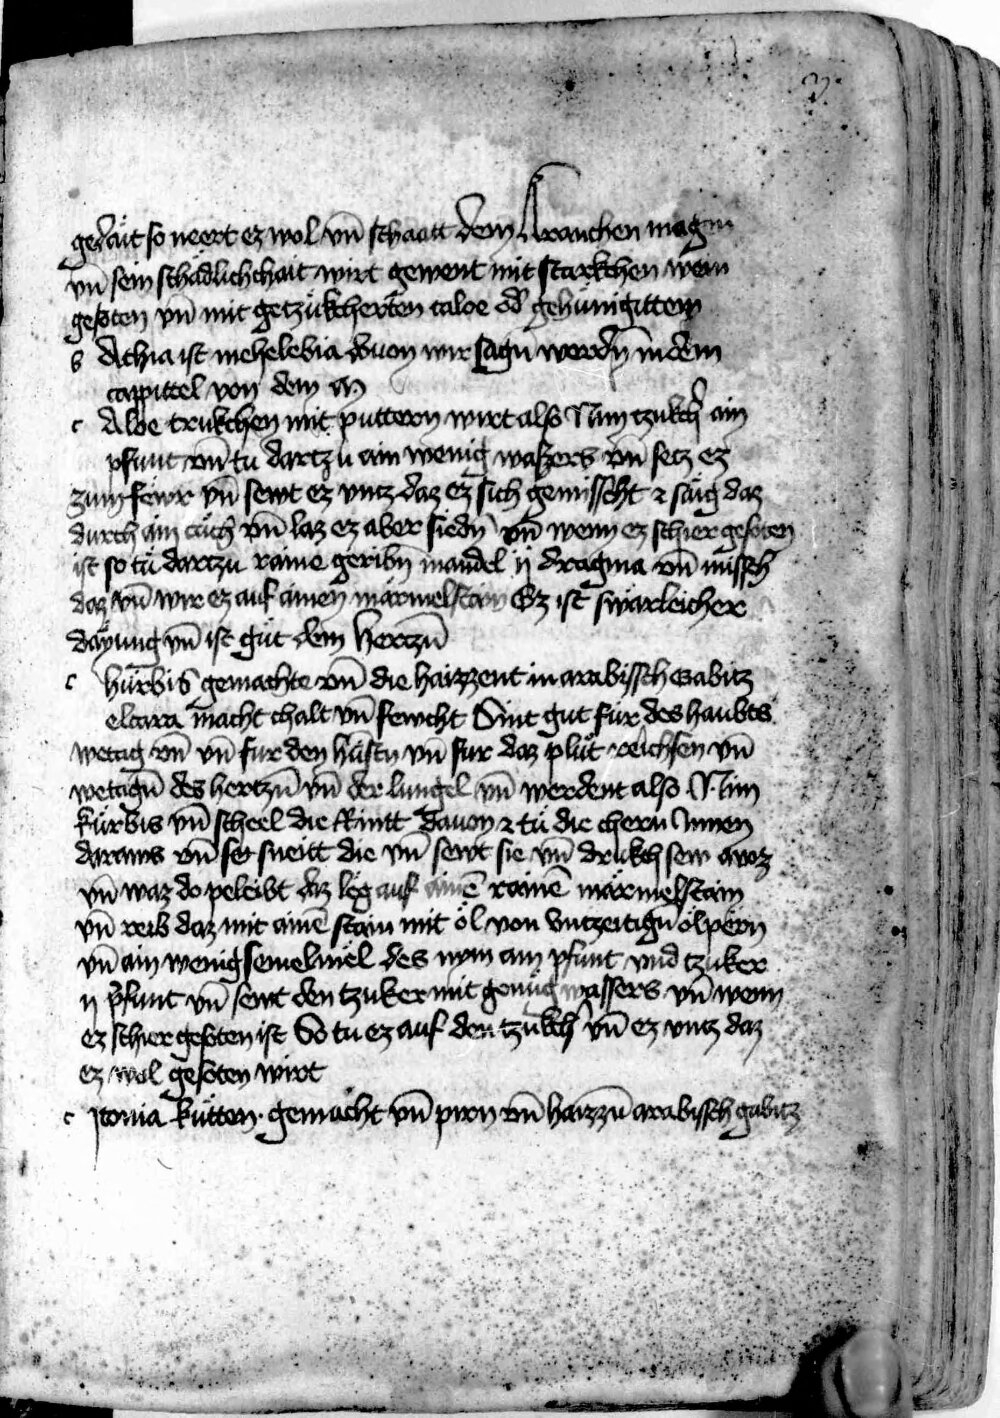 gedäut so neert ez wol vnd̄ schaatt dem krancken magen
vn̄ sein schadlichchait wirt gewent mit starkchen wein
gesoten vn̄ mit getzükcherten caloe od̄ gehünigittem
s Achia ist mehelebia dauon wir sagn̄ werdn̄ in dem
cappittel von dem M
c Aloe trukchen mit puttern wirt also Nim tzukch̄ ain
pfunt vn̄ tu dartzu ain wenig waßers vn̄ setz ez
zum fewr vn̄ sewt ez vntz daz ez sich gemisscht & saig daz
durch ain tuch vn̄ laz ez aber siedn̄ vn̄ wenn ez schier gesoten
ist so tü dartzu raine geribn̄ mandel ij dragma vn̄ missch̄
daz vn̄ wir ez auf ainen marmelstain Ez ist swarleicher
dayung vn̄ ist güt dem hertzn̄
c kürbis gemachte vn̄ die haizzent in arabissch Gabitz
elcara macht chalt vn̄ fewcht Sint gut für des haubts
wetag vn̄ vn̄ fur den hüstn̄ vn̄ fur daz plüt reichsen vn̄
wetagn̄ des hertzn̄ vn̄ der lungel vn̄ werdent also Nim
kürbis vn̄ scheel die Rintt dauon & tü die chern Innen
daraus vn̄ sneitt die vn̄ sewt sie vn̄ drukch sew aus
vn̄ waz do peleibt daz leg auf ainē rainē marmelstain
vn̄ reib daz mit ainē stain mit öl von vntzeitign̄ ölpern
vn̄ ain wenig semelmel des nym ain pfunt vnd tzuker
ij pfunt vn̄ sewt den tzuker mit genüg wassers vn̄ wenn
ez schier gesoten ist So tu ez auf den tzukch̄ vn̄ ez vntz daz
ez wol gesoten wirt
c Jtonia kütten gemacht vn̄ pirn vn̄ haizzn̄ arabissch gabitz